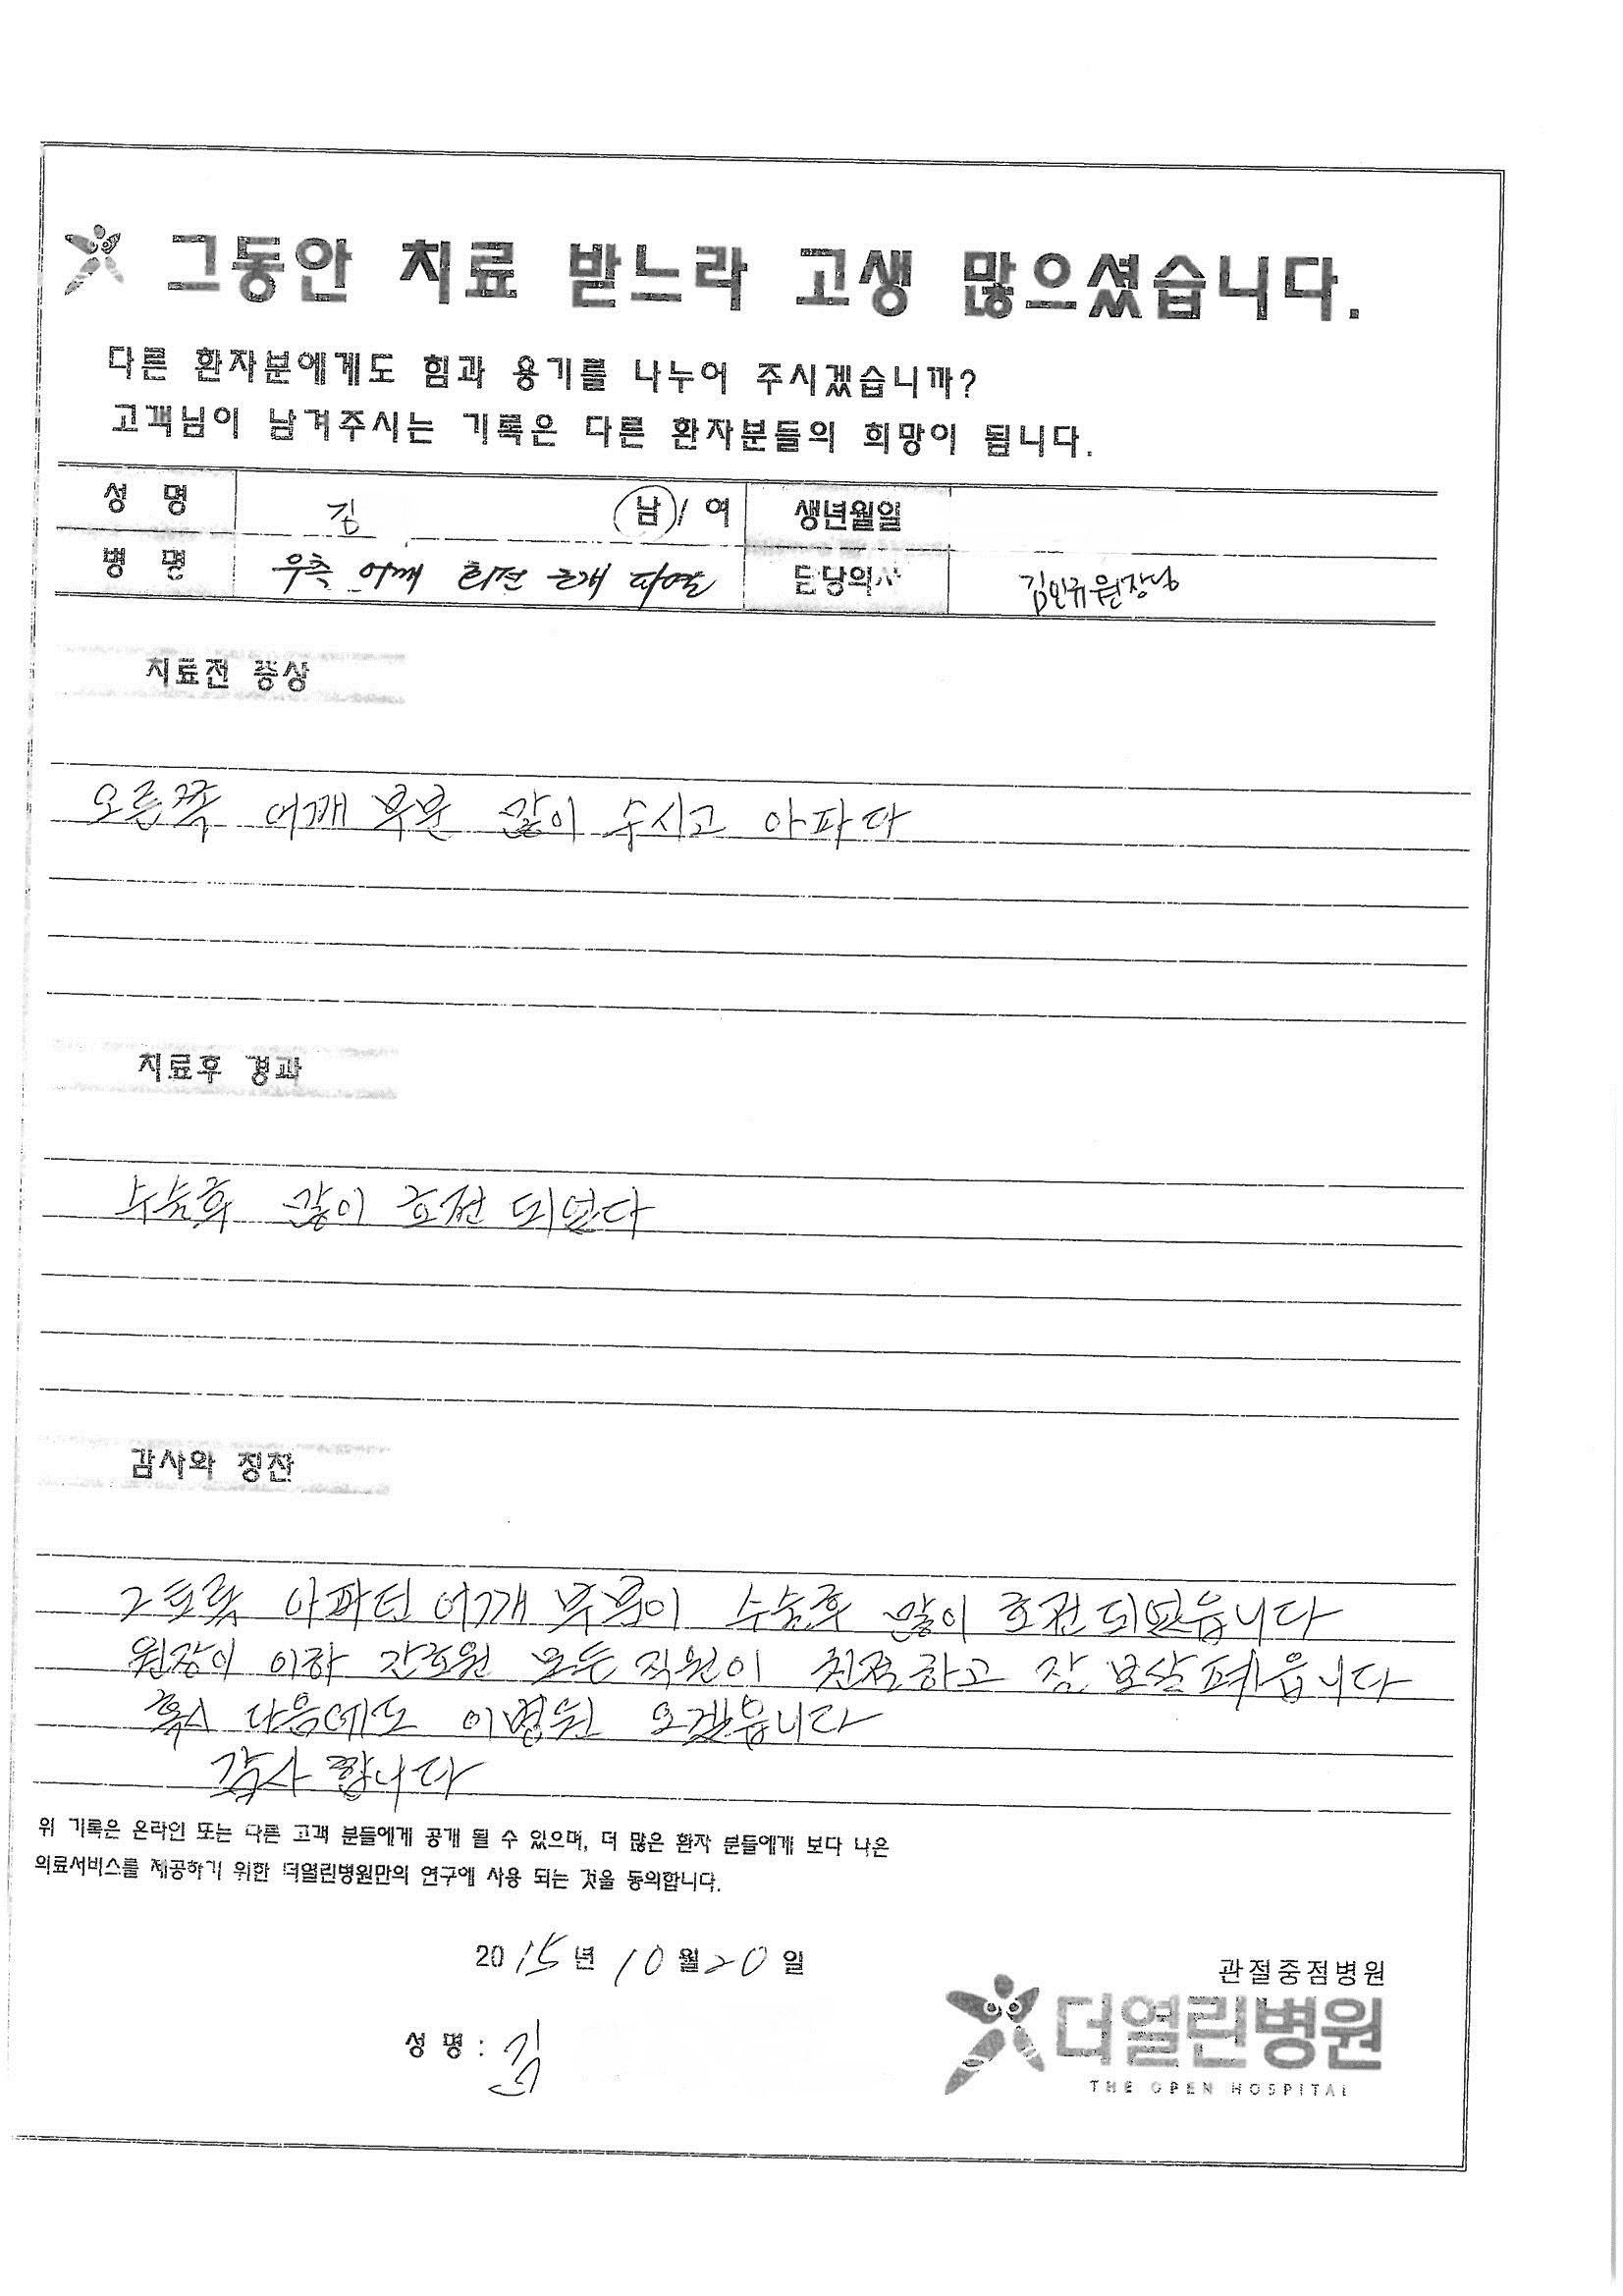 그동안 치료 받느라 고생 많으셨습니다.
다른 환자분에게도 힘과 용기를 나누어 주시겠습니까?
고객님이 남겨주시는 기록은 다른 환자분들의 희망이 됩니다.
성 명 김 남/여 생년월일
병 명 우측 어깨 회전근개 파열 담당의사 김인규원장님
치료전 증상
오른쪽 어깨 부분 많이 수시고 아파다
치료후 경과
수술후 많이 호전 되었다
감사와 칭찬
그토록 아파던 어깨 부분이 수술후 많이 호전되었읍니다
원장이 이하 간호원 모든 직원이 친절하고 잘 보살펴읍니다
혹시 다음에도 이병원 오겠읍니다
감사 합니다
위 기록은 온라인 또는 다른 고객 분들에게 공개 될 수 있으며, 더 많은 환자 분들에게 보다 나은
의료서비스를 제공하기 위한 더열린병원만의 연구에 사용 되는 것을 동의합니다.
2015년 10월 20일
성 명 : 김
관절중점병원
더열린병원
THE OPEN HOSPITAL